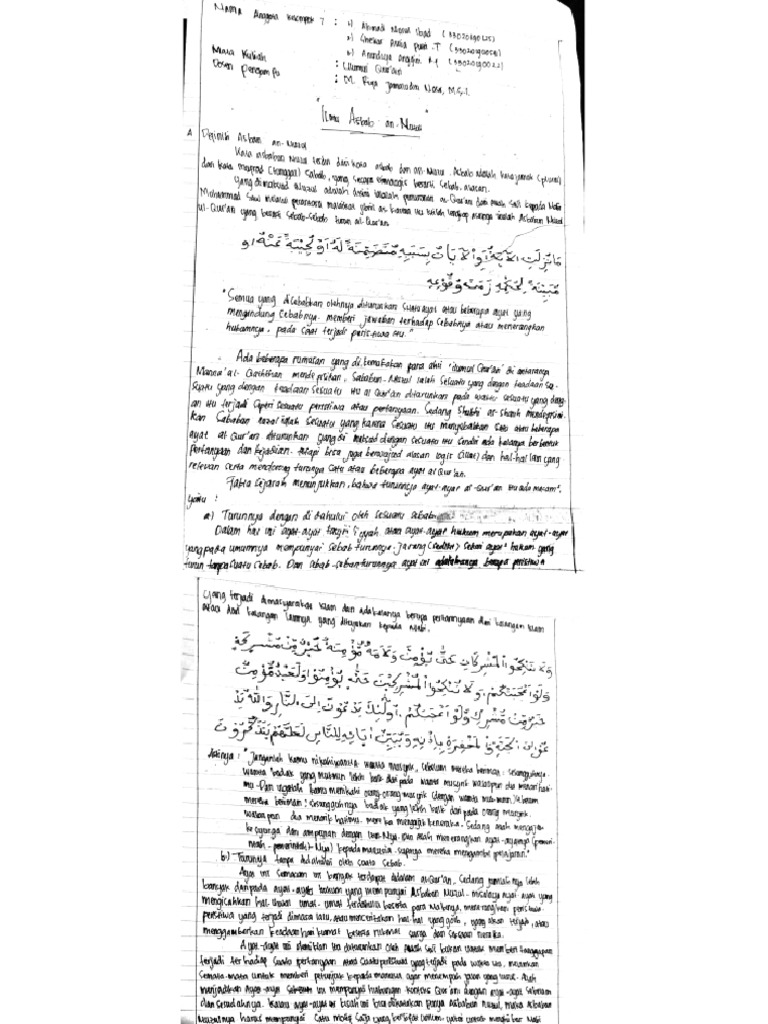 Nama Anggota Kelompok 7 : 1) Ahmad
2)
3)
Mata Kuliah : Ulumul Qur'an
Dosen Pengampu : M.
"Ilmu Asbab an-Nuzul"
A
Kata asbabun Nuzul terdiri dari kata asbab dan an-Nuzul. Asbab adalah kata jamak (plural)
dari kata mufrod (tunggal) sabab, yang secara etimologis berarti sebab, alasan.
yang Nuzul adalah penurunan al-Qur'an dari Allah SWT kepada Nabi
Muhammad SAW melalui perantara malaikat Jibril as. Karena itu istilah lengkap asalnya adalah Asbabun Nuzul
ul-Qur'an yang berarti sebab-sebab turun al-Qur'an.
مَا نُزِّلَتِ الْآيَةُ أَوِ الْآيَاتُ بِسَبَبِهِ مُتَضَمِّنَةً لَهُ أَوْ مُجِيْبَةً عَنْهُ أَوْ
مُبَيِّنَةً لِحُكْمِهِ زَمَنَ وُقُوْعِهِ
"Semua yang disebabkan olehnya diturunkan suatu ayat atau beberapa ayat yang
mengandung sebabnya, memberi jawaban terhadap sebabnya atau menerangkan
hukumnya, pada saat terjadi peristiwa itu."
Ada beberapa rumusan yang di kemukakan para ahli 'ulumul Qur'an' di antaranya
Manna' al-Qaththan
suatu yang dengan keadaan sesuatu itu al Qur'an diturunkan pada waktu sesuatu yang deng-
an itu terjadi seperti sesuatu peristiwa atau pertanyaan. Sedang Shubhi as-shalih
kan Sababun nuzul ialah sesuatu yang karena sesuatu itu menyebabkan satu atau beberapa
ayat al Qur'an diturunkan yang di maksud dengan sesuatu itu sendiri ada kalanya berbentuk
pertanyaan dan kejadian. tetapi bisa juga berwujud alasan logis (illat) dan hal-hal lain yang
relevan serta mendorong turunnya satu atau beberapa ayat al Qur'an.
Fakta sejarah menunjukkan, bahwa turunnya ayat-ayat al-Qur'an itu ada macam",
yaitu :
a) Turunnya dengan di dahului oleh sesuatu sebab
Dalam hal ini ayat-ayat tasyri'iyyah atau ayat-ayat hukum merupakan ayat-ayat
yang pada umumnya mempunyai sebab turunnya. Jarang sekali ayat" hukum yang
turun tanpa suatu sebab. Dan sebab-sebab turunnya ayat ini adakalanya berupa peristiwa
yang terjadi dimasyarakat Islam dan adakalanya berupa pertanyaan dari kalangan Islam
atau dari kalangan lainnya yang ditujukan kepada Nabi.
وَلَا تَنْكِحُوا الْمُشْرِكَاتِ حَتَّى يُؤْمِنَّ وَلَأَمَةٌ مُؤْمِنَةٌ خَيْرٌ مِنْ مُشْرِكَةٍ
وَلَوْ أَعْجَبَتْكُمْ وَلَا تُنْكِحُوا الْمُشْرِكِيْنَ حَتَّى يُؤْمِنُوْا وَلَعَبْدٌ مُؤْمِنٌ
خَيْرٌ مِنْ مُشْرِكٍ وَلَوْ أَعْجَبَكُمْ أُولَٰئِكَ يَدْعُوْنَ إِلَى النَّارِ وَاللَّهُ يَدْ
عُوْا إِلَى الْجَنَّةِ وَالْمَغْفِرَةِ بِإِذْنِهِ وَيُبَيِّنُ آيَاتِهِ لِلنَّاسِ لَعَلَّهُمْ يَتَذَكَّرُوْنَ
Artinya : "Janganlah kamu nikahi wanita-wanita musyrik, sebelum mereka beriman. Sesungguhnya
wanita budak yang mukmin lebih baik dari pada wanita musyrik walaupun dia menarik hati
mu. Dan janganlah kamu menikahi orang-orang musyrik (dengan wanita mukminin) sebelum
mereka beriman. Sesungguhnya budak yang lebih baik dari pada orang musyrik
walaupun dia menarik hatimu. mereka mengajak ke neraka. Sedang Allah mengajak
ke surga dan ampunan dengan izin-Nya. Dan Allah menerangkan ayat-ayatnya (perin-
tah-perintah-Nya) kepada manusia supaya mereka mengambil pelajaran."
b) Turunnya tanpa didahului oleh suatu sebab.
Ayat ini semacam ini banyak terdapat didalam al-Qur'an, sedang jumlahnya lebih
banyak daripada ayat-ayat hukum yang mempunyai Asbabun Nuzul. misalnya ayat-ayat yang
mengisahkan hal-ihwal umat-umat terdahulu beserta para Nabinya, menerangkan peristiwa-
peristiwa yang terjadi dimasa lalu, atau menceritakan hal-hal yang goib, yang akan terjadi, atau
menggambarkan keadaan hari kiamat beserta nikmat surga dan siksaan neraka.
Ayat-ayat ini demikian itu diturunkan oleh Allah SWT bukan untuk memberi tanggapan
terjadi terhadap suatu pertanyaan atau suatu peristiwa yang terjadi pada waktu itu, melainkan
semata-mata untuk memberi petunjuk kepada manusia agar menempuh jalan yang lurus. Allah
menjadikan ayat-ayat ini mempunyai hubungan konteks Qur'ani dengan ayat-ayat sebelum
dan sesudahnya. Kalau ayat-ayat ini bisa dikatakan punya Asbabun Nuzul, maka Asbabun
Nuzulnya harus mempunyai satu yang bersifat umum, yaitu untuk Nabi